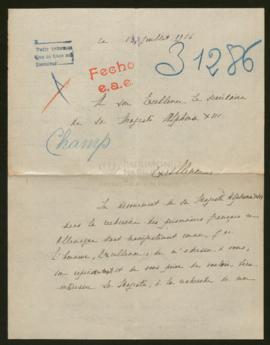 Pedir informes
31286
Fecho
e.a.e.
ce juillet 1916
A son Excellence le secrétaire
de sa Majesté Alphonse XIII
Champ
Excellence
Le dévouement de sa Majesté Alphonse XIII
dans la recherche des prisonniers français en
Allemagne étant
l'honneur, Excellence, de m'adresser à vous,
de vous prier de vouloir bien
intéresser Sa Majesté, à la recherche de mon